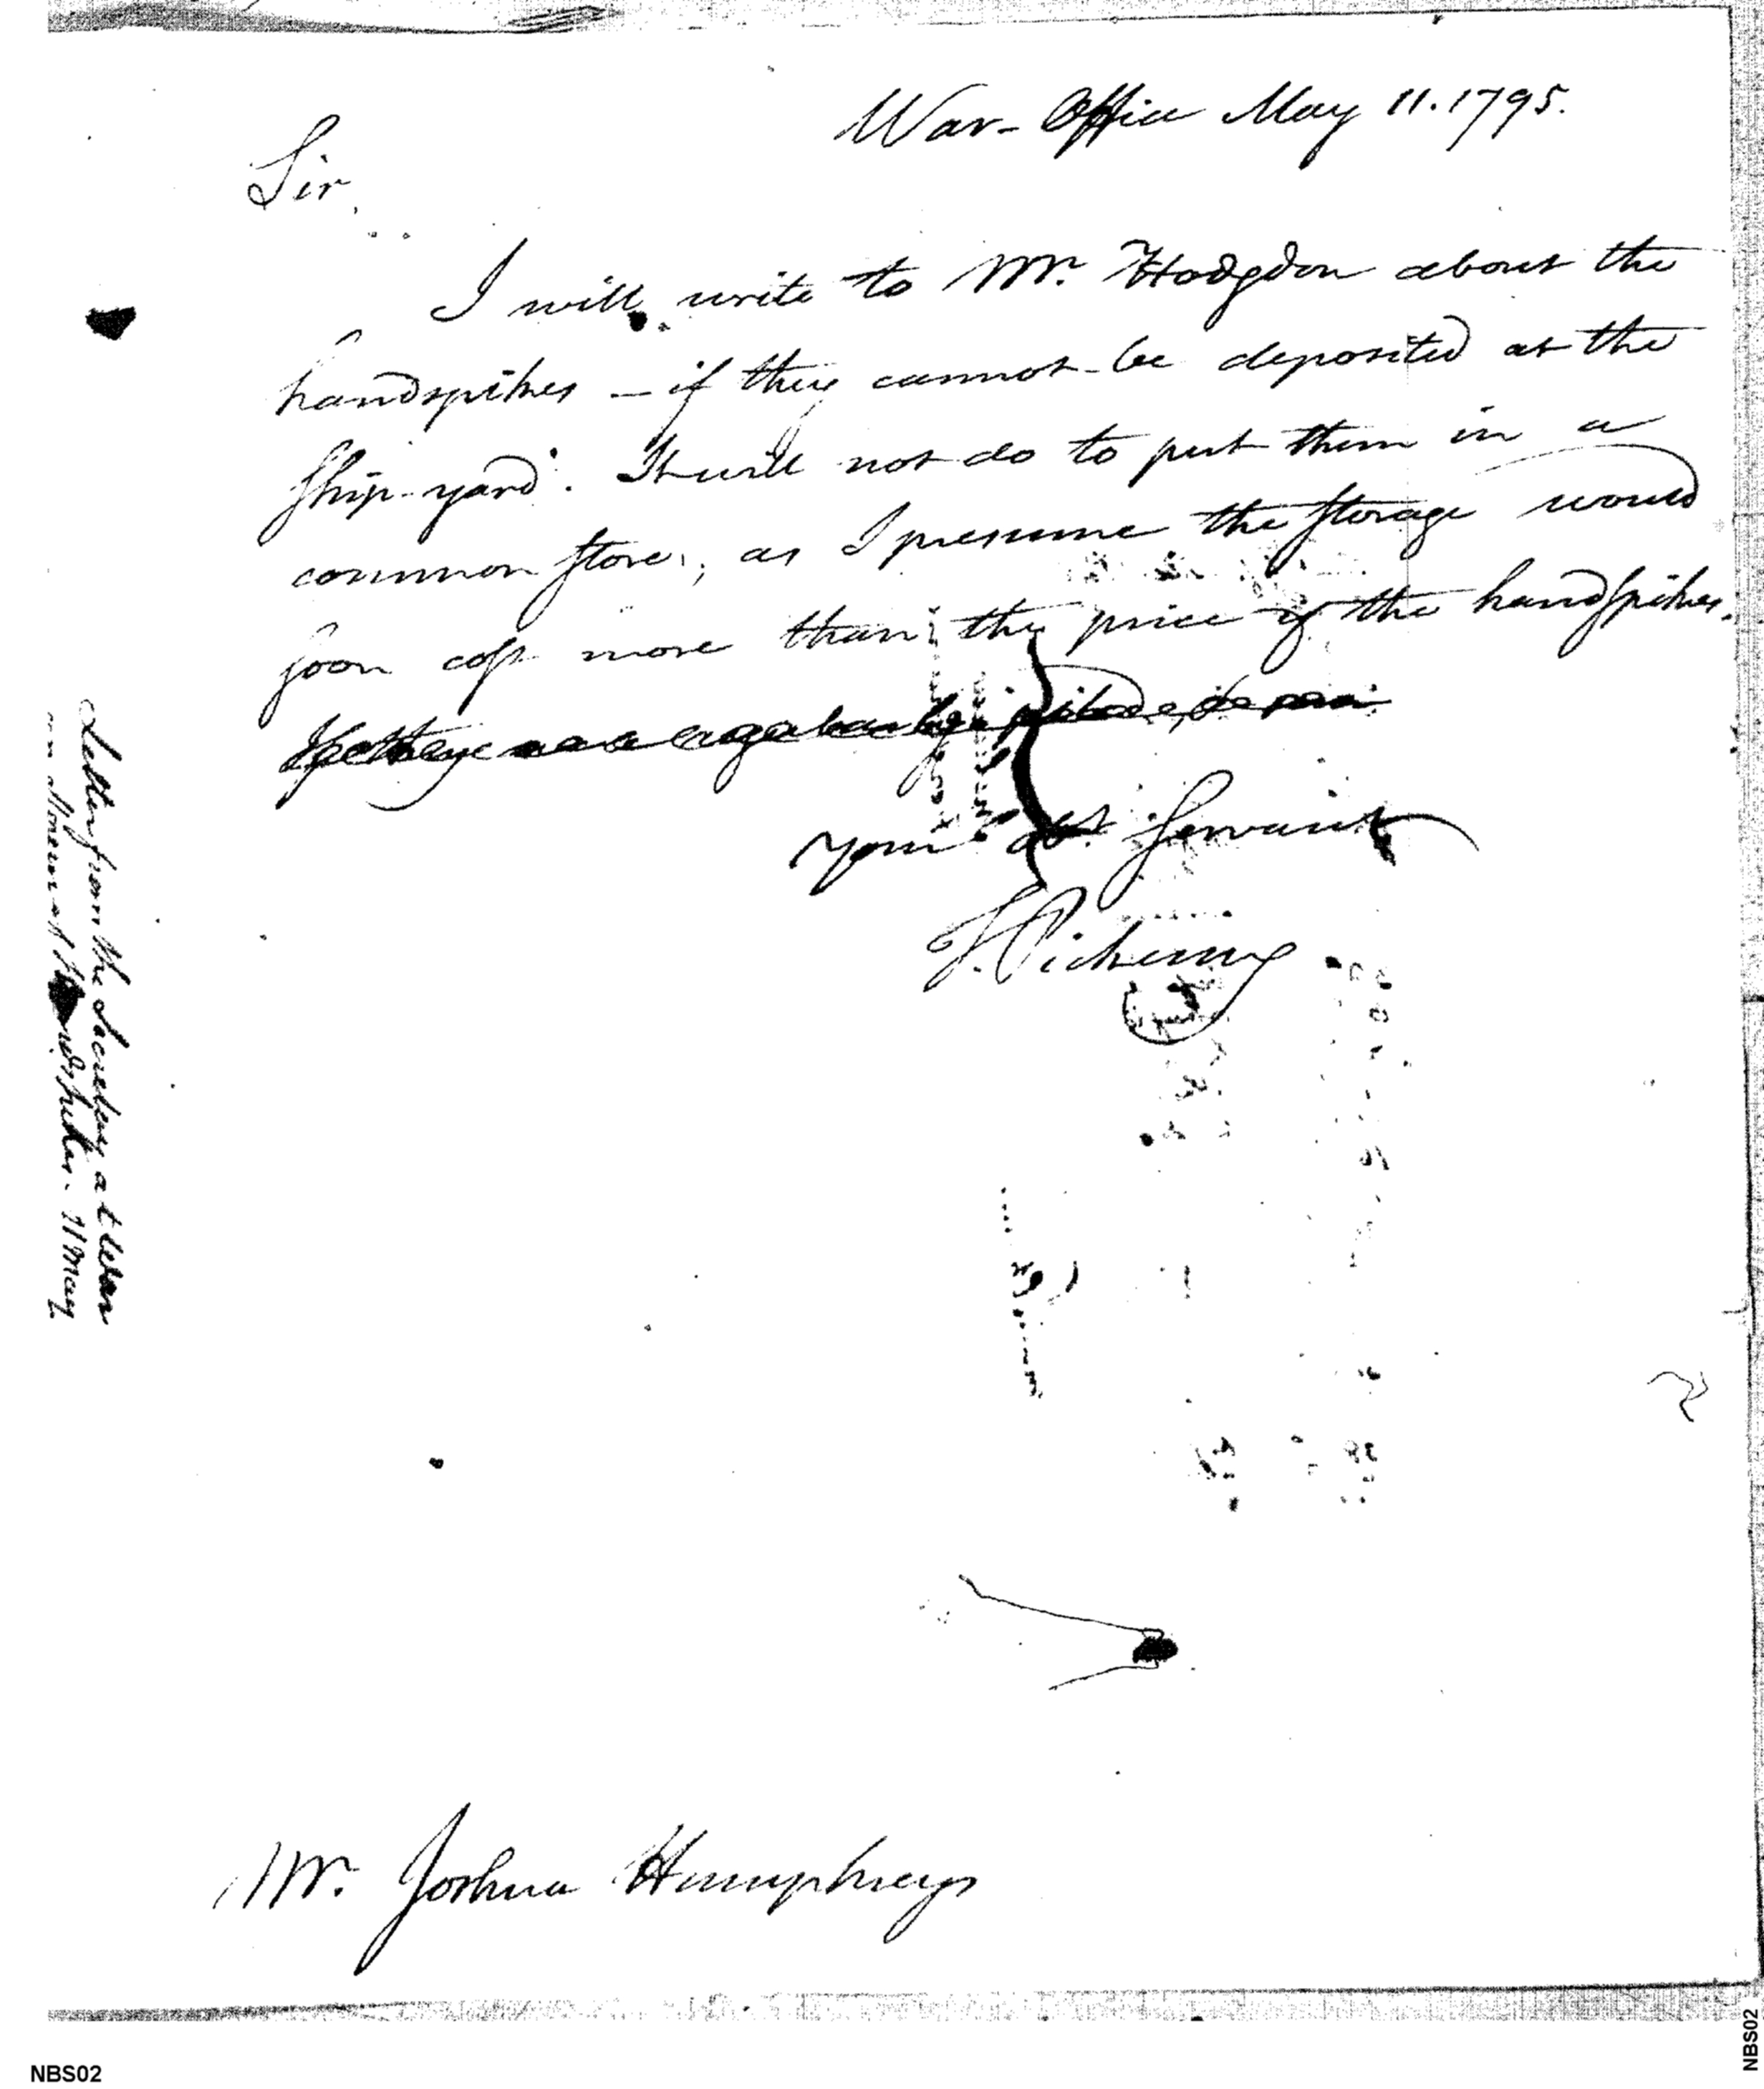 War-Office May 11. 1795.
Sir,
I will write to Mr. Hodgdon about the
handspikes — if they cannot be deposited at the
ship-yard. It will not do to put them in a
common store, as I presume the storage would
soon cost more than the price of the handspikes.
your obt. servant
T. Pickering
Mr. Joshua Humphreys
Letter from the Secretary at War
handspikes. 11 May
NBS02
NBS02